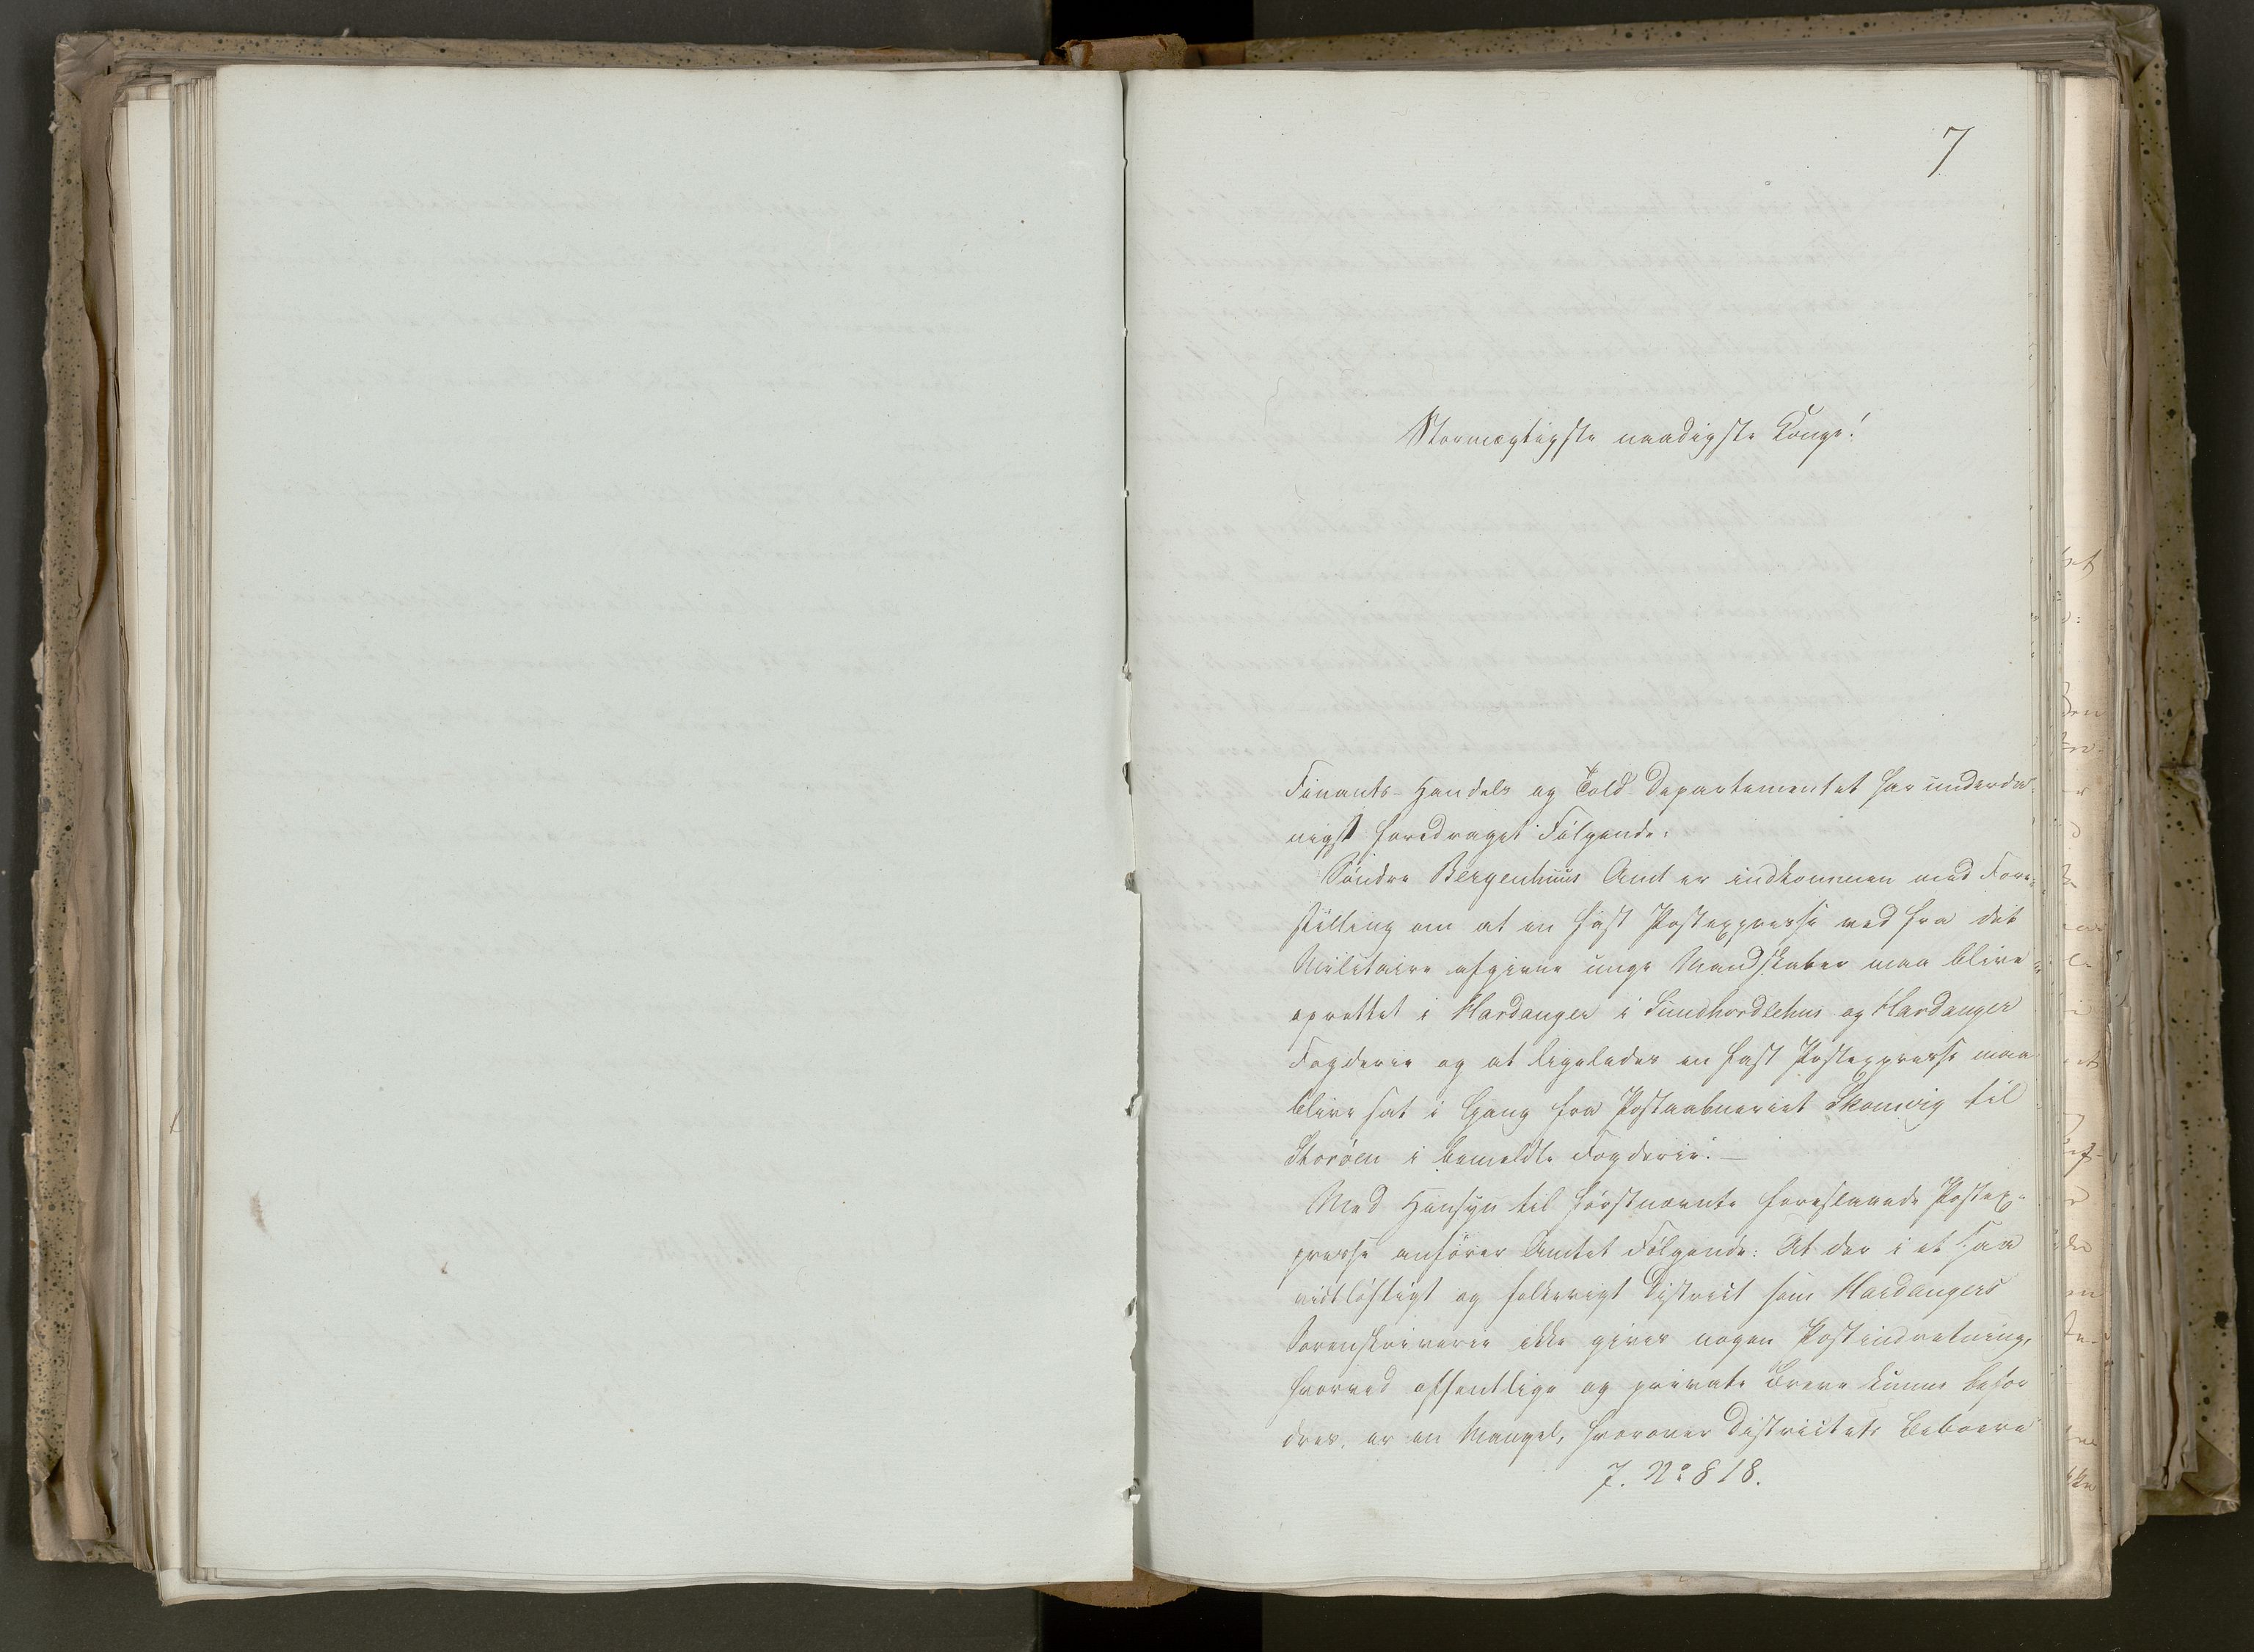 7
Stormægtigste naadigste Konge!
Finants- Handels og Told-Departementet har underda-
nigst foredraget Følgende:
Søndre Bergenhuus Amt er indkommen med Fore-
stilling om at en fast Postexpresse ved fra det
Militaire afgivne unge Mandskaber maa blive
oprettet i Hardanger i Sundhordlehns og Hardanger
Fogderie og at ligeledes en fast Postexpresse maa
blive sat i Gang fra Postaabneriet Skonevig til
Storøen i bemeldte Fogderie. —
Med Hensyn til førstnævnte foreslaaede Postex-
presse anfører Amtet Følgende: At der i et saa
vidtløftigt og folkerigt District som Hardangers
Sorenskriverie ikke gives nogen Postindretning,
hvorved offentlige og private Breve kunne befor
dres, er en Mangel, hvorover Districtets Beboere
J. No 818.